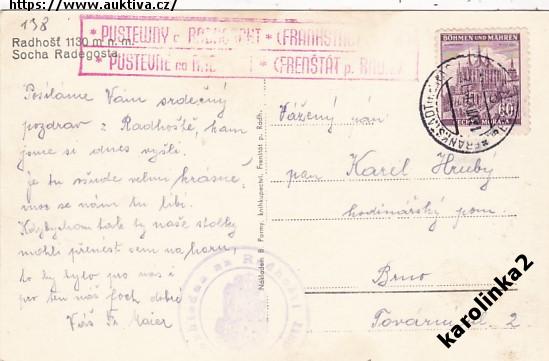 https://www.auktiva.cz/
138
Radhošť 1130 m n. m.
Socha Radegosta
* PUSTEWNY a. RADHOSCHT * (FRANKSTADT
* PUSTEVNE na RADHOŠTI * (FRENŠTÁT p. RADH.)
BÖHMEN UND MÄHREN
Posíláme Vám srdečný
pozdrav z Radhoště, kam
jsme si dnes vyšli.
Je tu všude velmi krásně,
moc se nám tu líbí.
Kdybychom tak ty naše stolky
mohli přenést sem na horu,
to by bylo pro nás i
pro ten náš foch dobré
Váš Fr. Maier
Nákladem B. Formy, knihkupectví, Frenštát p. Radh.
Vážený pán
pan Karel Hrubý
hodinářský pom.
Brno
Tovární 2
karolinka2